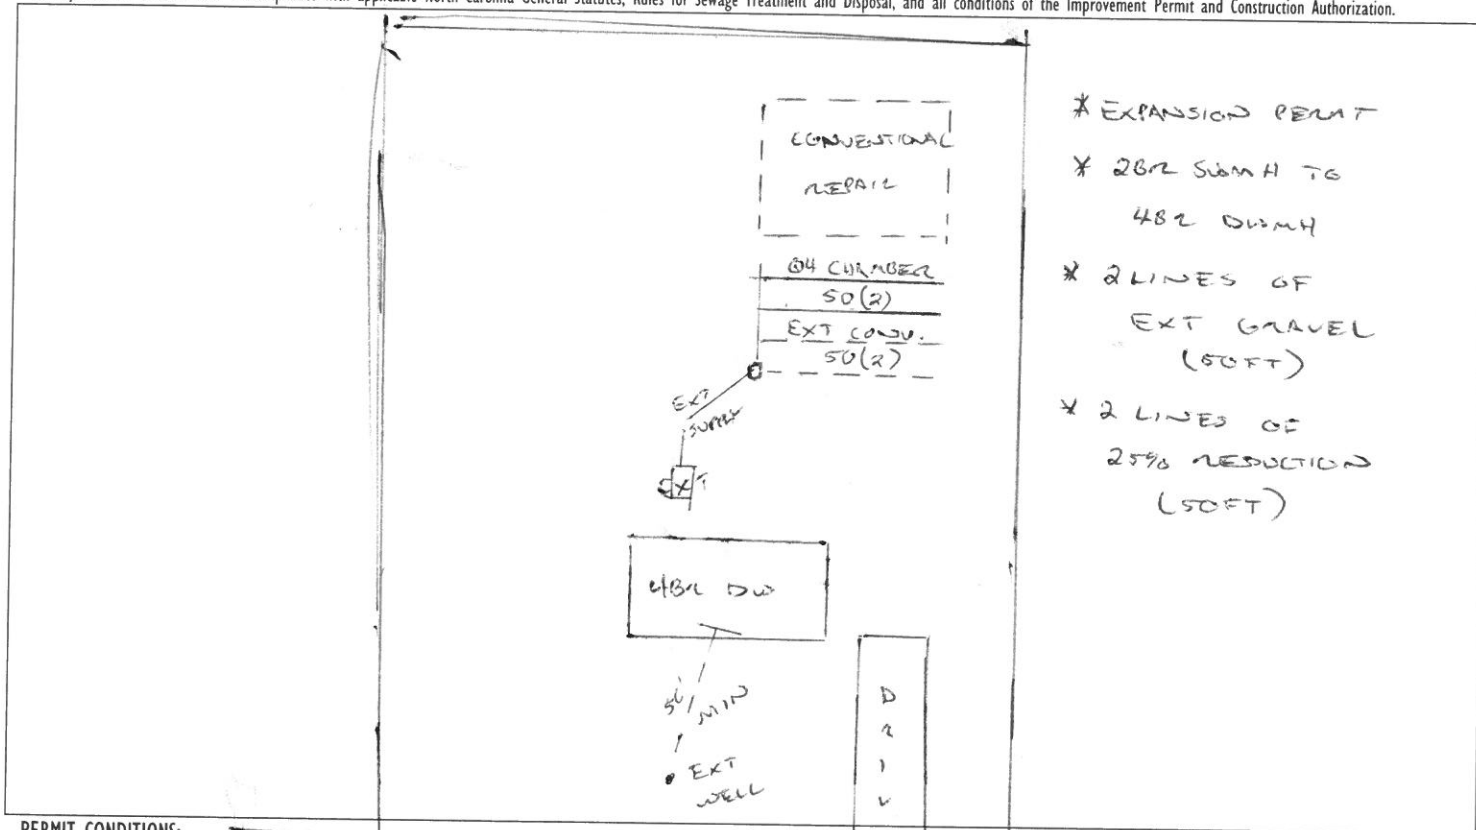 applicable North Carolina General Statutes, Rules for Sewage Treatment and Disposal, and all conditions of the Improvement Permit and Construction Authorization.
CONVENTIONAL
REPAIR
CHAMBER
50(2)
EXT CONV.
50(2)
EXT
SUPPLY
EXT
4BR DW
50'
MIN
EXT
WELL
D
R
I
V
* EXPANSION PERMT
* 2BR SWMH TO
4BR DWMH
* 2 LINES OF
EXT GRAVEL
(50FT)
* 2 LINES OF
25% REDUCTION
(50FT)
PERMIT CONDITIONS: